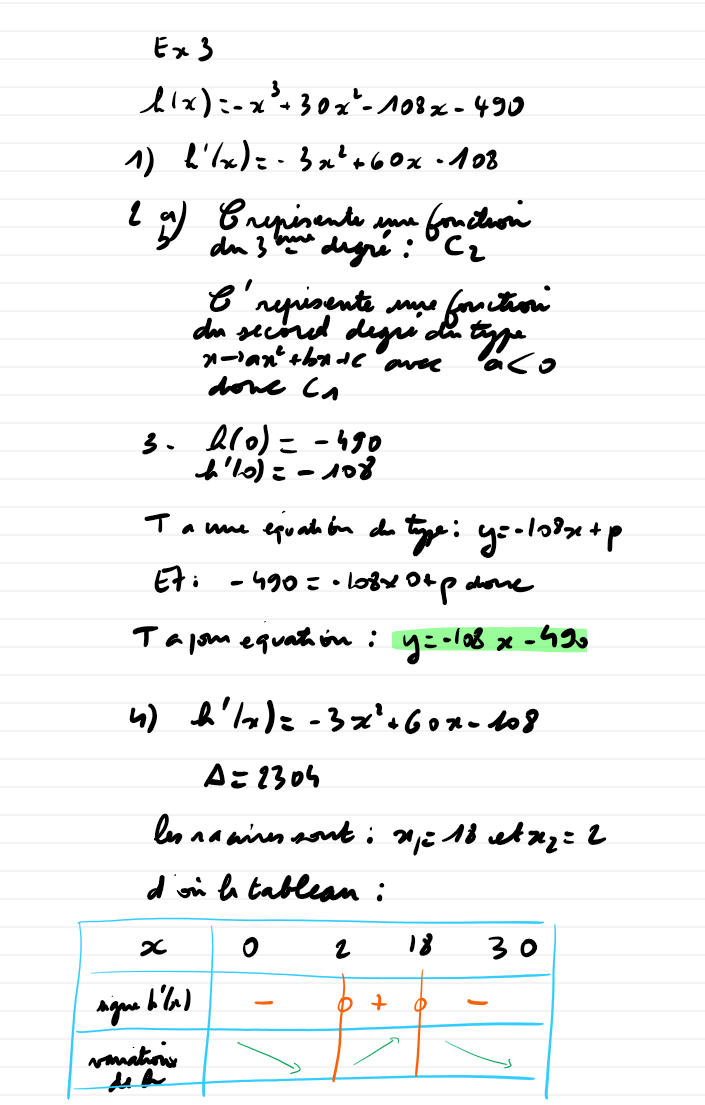 Ex 3
h(x) = -x³ + 30x² - 108x - 490
1) h'(x) = -3x² + 60x - 108
2 a) C représente une fonction
b du 3ème degré : C2
C' représente une fonction
du second degré du type
x→ax²+bx+c avec a<0
donc C1
3. h(0) = -490
h'(0) = -108
T a une équation du type : y=-108x+p
ET : -490 = -108x0+p donc
T a pour equation : y=-108x-490
4) h'(x) = -3x²+60x-108
Δ = 2304
les racines sont : x1=18 et x2=2
d'où le tableau :
x 0 2 18 30
signe h'(x) - 0 + 0 -
variations
de h